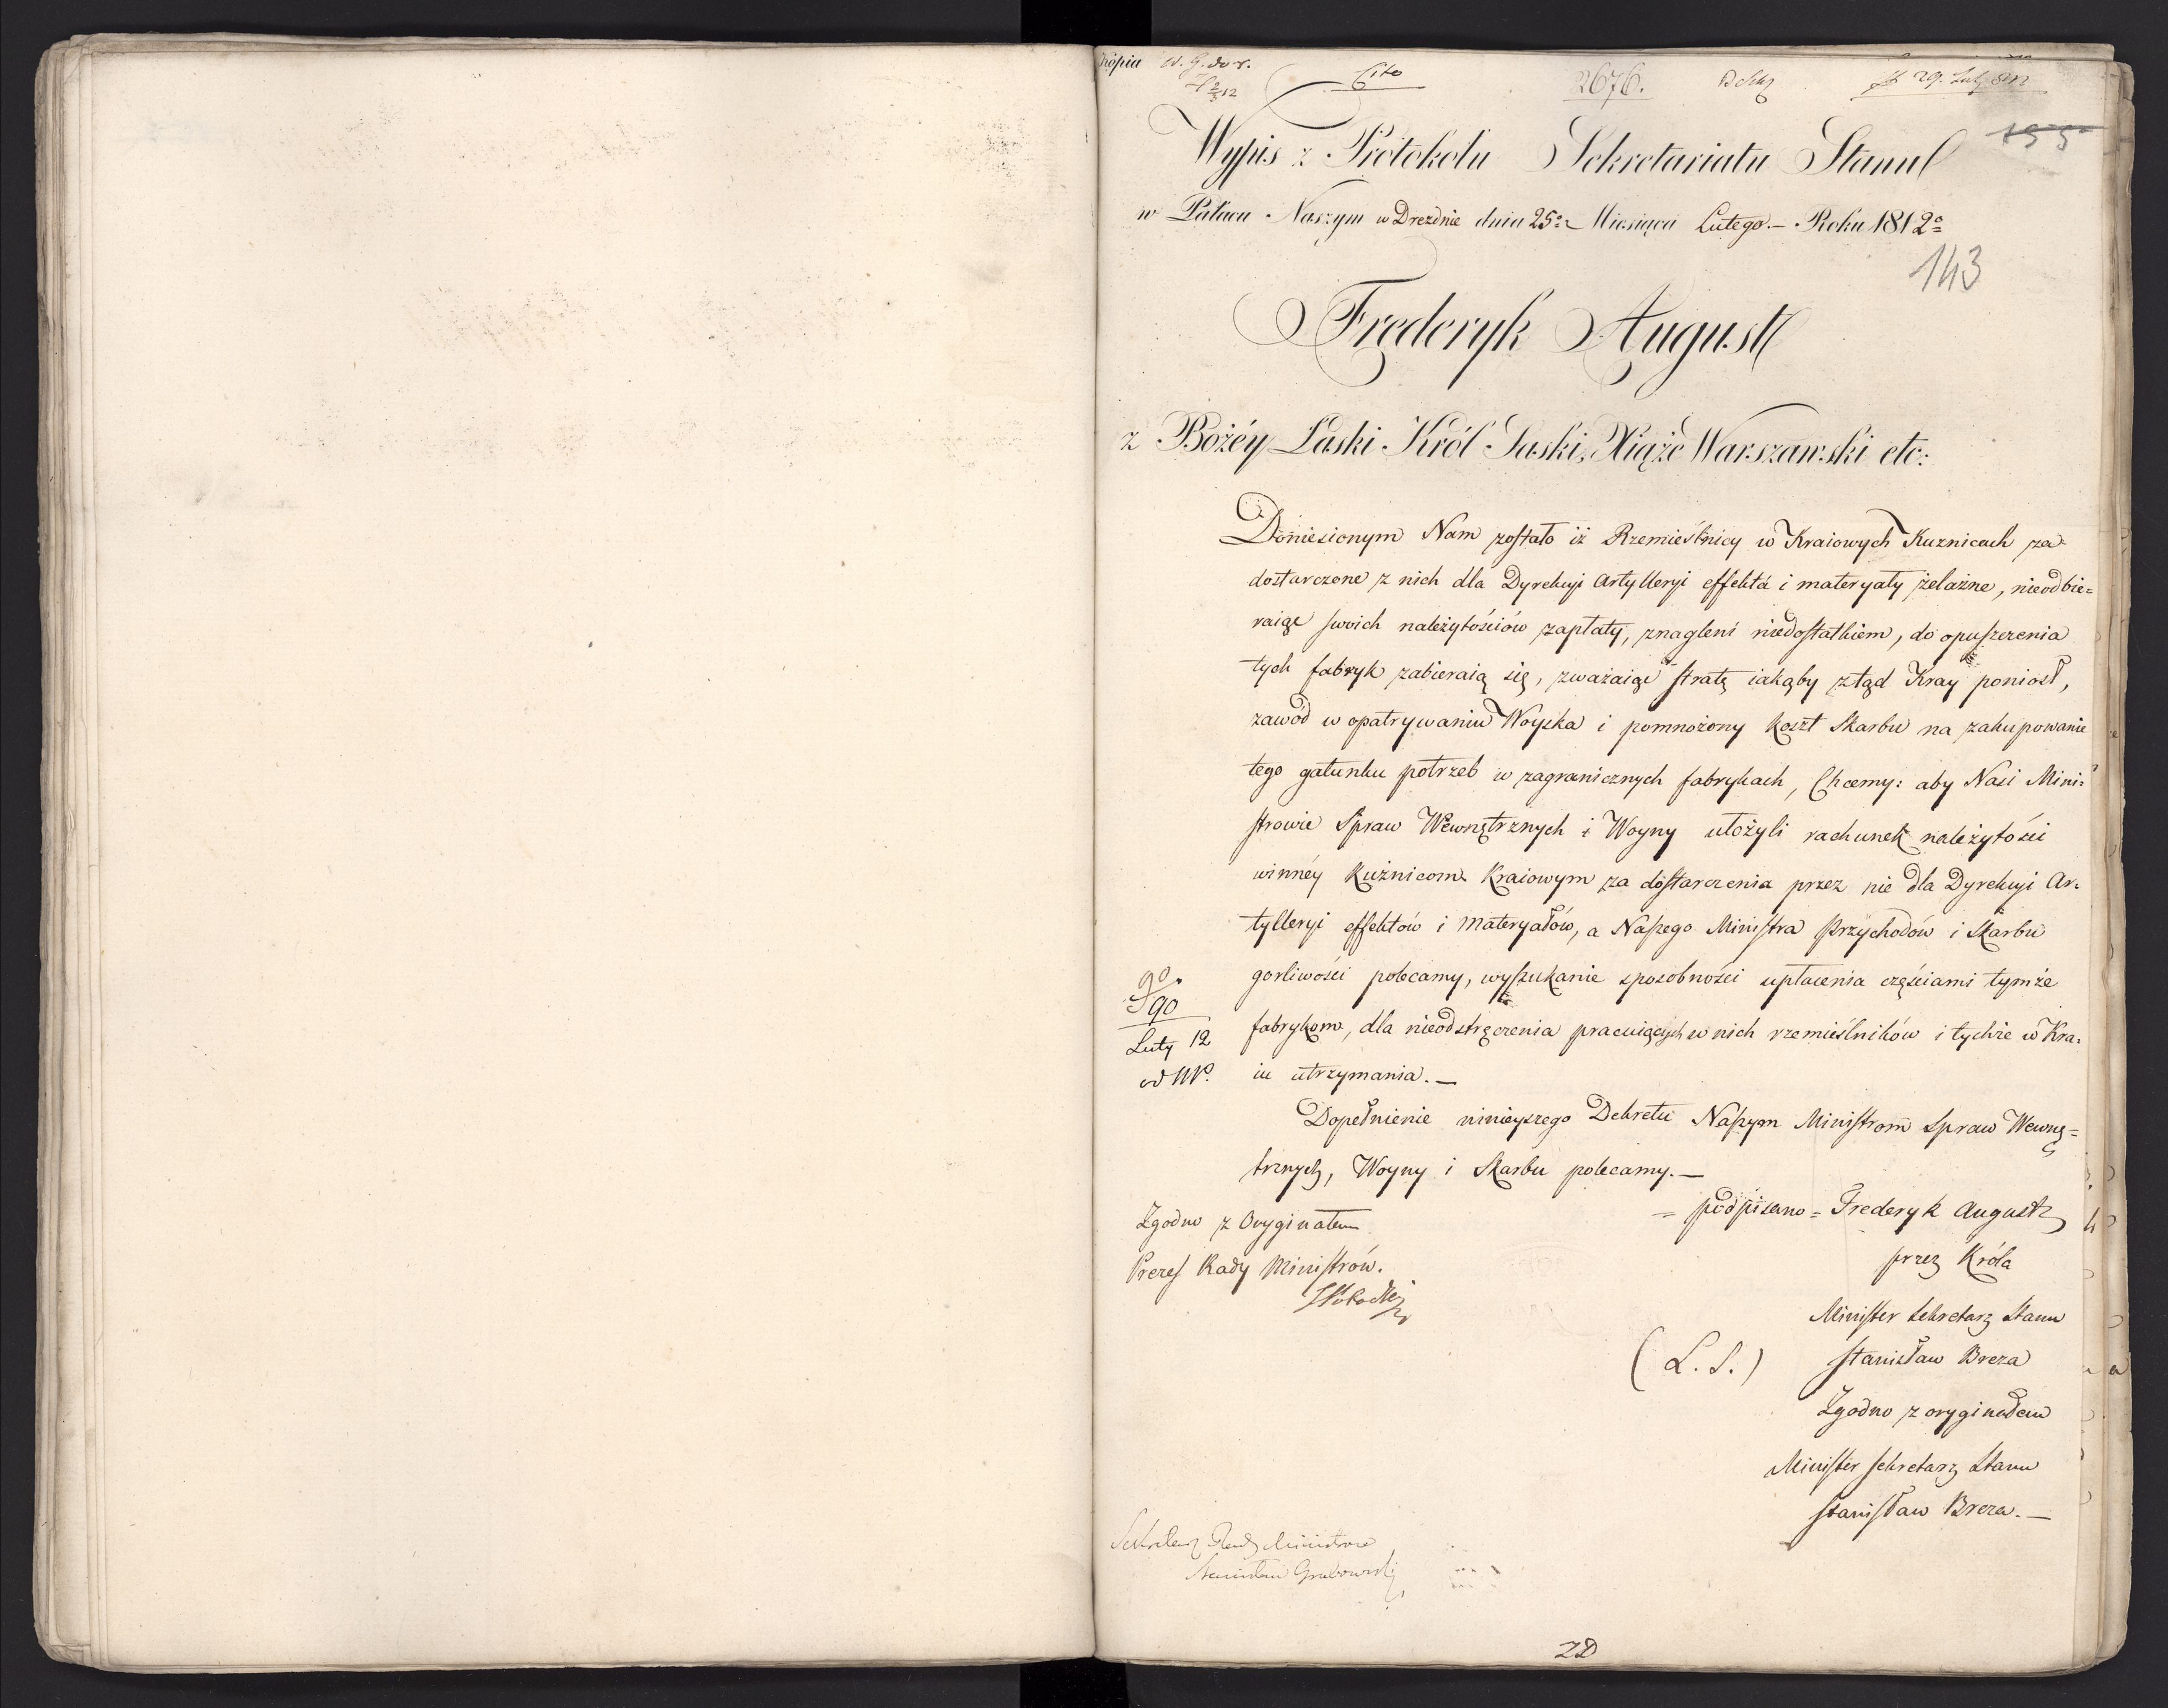 Kopia
Cito
2676.
29. Lut. 812
155
Wypis z Protokolu Sekretariatu Stanu
w Pałacu Naszym w Dreznie dnia 25º Miesiąca Lutego.— Roku 1812º
143
Frederyk August
z Bożéy Łaski Król Saski, Xiąże Warszawski etc:
Doniesionym Nam zostało iż Rzemieślnicy w Kraiowych Kuznicach za
dostarczone z nich dla Dyrekcyi Artylleryi effekta i materyały żelazne, nieodbie=
raiąc swoich należytościów zapłaty, znagleni niedostatkiem, do opuszczenia
tych fabryk zabieraią się, zważaiąc stratę iakąby ztąd Kray poniosł,
zawód w opatrywaniu Woyska i pomnożony koszt Skarbu na zakupowanie
tego gatunku potrzeb w zagranicznych fabrykach, Chcemy: aby Nasi Mini=
strowie Spraw Wewnętrznych i Woyny ułożyli rachunek należytości
winnéy Kuźnicom Kraiowym za dostarczenia przez nie dla Dyrekcyi Ar=
tylleryi effektów i materyałów, a Naszego Ministra Przychodów i Skarbu
gorliwości polecamy, wyszukanie sposobności upłacenia częściami tymże
fabrykom, dla nieodstręczenia pracuiących w nich rzemieślników i tychże w Kra=
iu utrzymania.—
90
Luty 12
Dopełnienie ninieyszego Dekretu Naszym Ministrom Spraw Wewnę=
trznych, Woyny i Skarbu polecamy.—
= podpisano = Frederyk August
przez Króla
Minister Sekretarz Stanu
(L.S.) Stanisław Breza
Zgodno z oryginałem
Minister Sekretarz Stanu
Stanisław Breza.—
Zgodno z Oryginałem
Prezes Rady Ministrów.
Sekretarz Rady Ministrów
Stanisław Grabowski